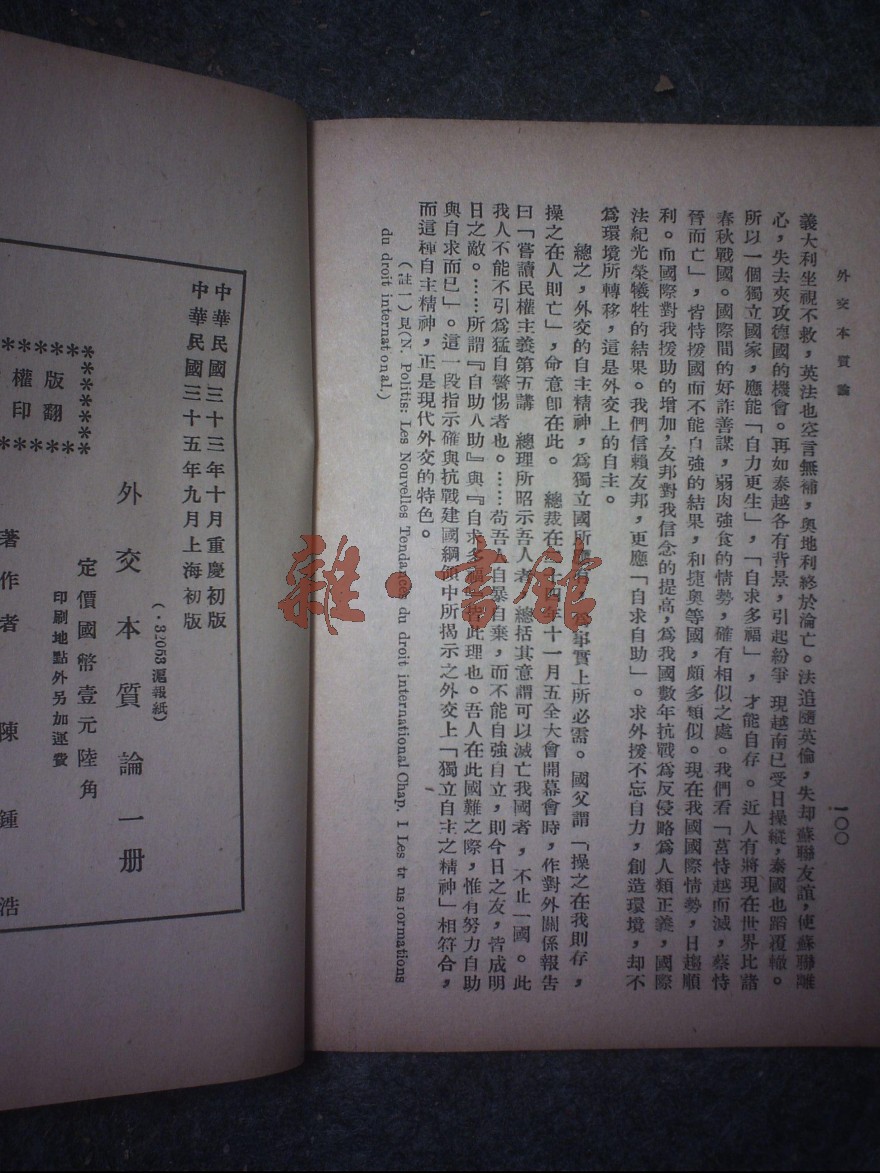 外交本質論
一〇〇
義大利坐視不救，英法也空言無補，奧地利終於淪亡。法追隨英倫，失却蘇聯友誼，使蘇聯離
心，失去夾攻德國的機會。再如泰越各有背景，引起紛爭 現越南已受日操縱，泰國也蹈覆轍。
所以一個獨立國家，應能「自力更生」，「自求多福」，才能自存。近人有將現在世界比諸
春秋戰國。國際間的好詐善謀，弱肉強食的情勢，確有相似之處。我們看「莒恃越而滅，蔡恃
晉而亡」，皆恃援國而不能自強的結果，和捷奧等國，頗多類似。現在我國國際情勢，日趨順
利。而國際對我援助的增加，友邦對我信念的提高，爲我國數年抗戰爲反侵略爲人類正義，國際
法紀光榮犧牲的結果。我們信賴友邦，更應「自求自助」。求外援不忘自力，創造環境，却不
爲環境所轉移，這是外交上的自主。
總之，外交的自主精神，爲獨立國所應有，事實上所必需。國父謂「操之在我則存，
操之在人則亡」，命意卽在此。 總裁在 十四年十一月五全大會開幕會時，作對外關係報告
曰「嘗讀民權主義第五講 總理所昭示吾人者 總括其意謂可以滅亡我國者，不止一國。此
我人不能不引爲猛自警惕者也。……苟吾人自暴自棄，而不能自強自立，則今日之友，皆成明
日之敵。……所謂『自助人助』與『自求多福』 此理也。吾人在此國難之際，惟有努力自助
與自求而已」。這一段指示確與抗戰建國綱領中所揭示之外交上「獨立自主之精神」相符合，
而這種自主精神，正是現代外交的特色。
(註一)見(N. Politis: Les Nouvelles Tendances du droit international Chap. I Les tr ns formations
du droit international.)
中華民國三十三年十月重慶初版
中華民國三十五年九月上海初版
(·32053滬報紙)
外交本質論一册
定價國幣壹元陸角
印刷地點外另加運費
******
版翻
權印
******
著作者 陳鍾浩
雜·書館